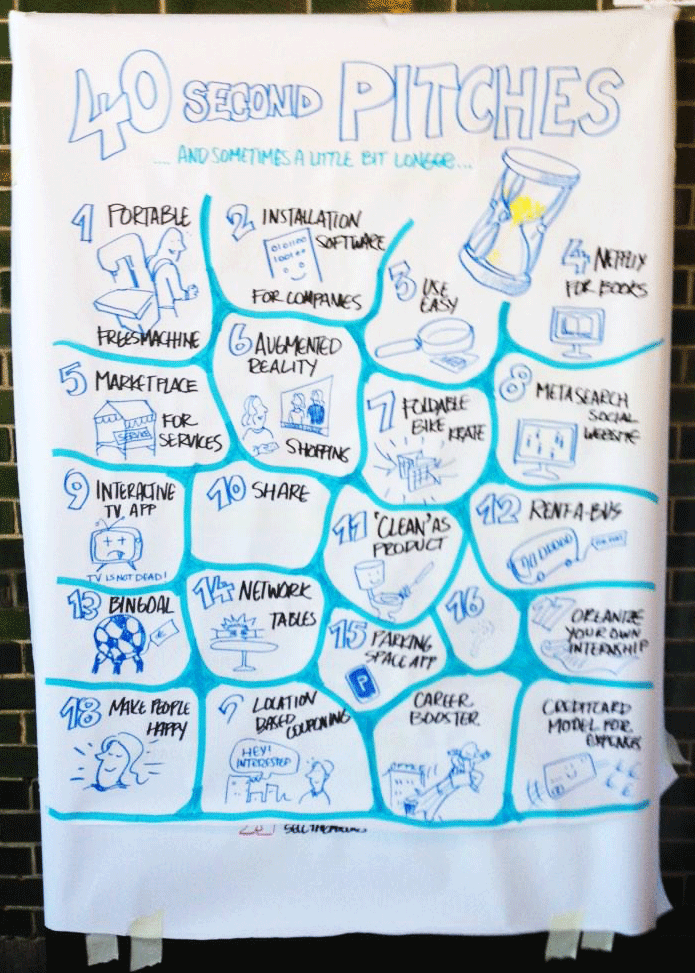 40 SECOND PITCHES
.... AND SOMETIMES A LITTLE BIT LONGER...
1 PORTABLE
FREESMACHINE
2 INSTALLATION
SOFTWARE
0101100
1001
FOR COMPANIES
3 USE
EASY
4 NETFLIX
FOR BOOKS
5 MARKETPLACE
FOR
SERVICES
SERVICE
6 AUGMENTED
REALITY
SHOPPING
7 FOLDABLE
BIKE KRATE
8 METASEARCH
SOCIAL
WEBSITE
9 INTERACTIVE
TV APP
TV IS NOT DEAD!
10 SHARE
11 'CLEAN' AS
PRODUCT
12 RENT-A-BUS
13 BINGOAL
14 NETWORK
TABLES
15 PARKING
SPACE APP
P
16
17 ORGANIZE
YOUR OWN
INTERNSHIP
18 MAKE PEOPLE
HAPPY
LOCATION
BASED COUPONING
HEY!
INTERESTED
CAREER
BOOSTER
CREDITCARD
MODEL FOR
EXPENSES
SELL THE